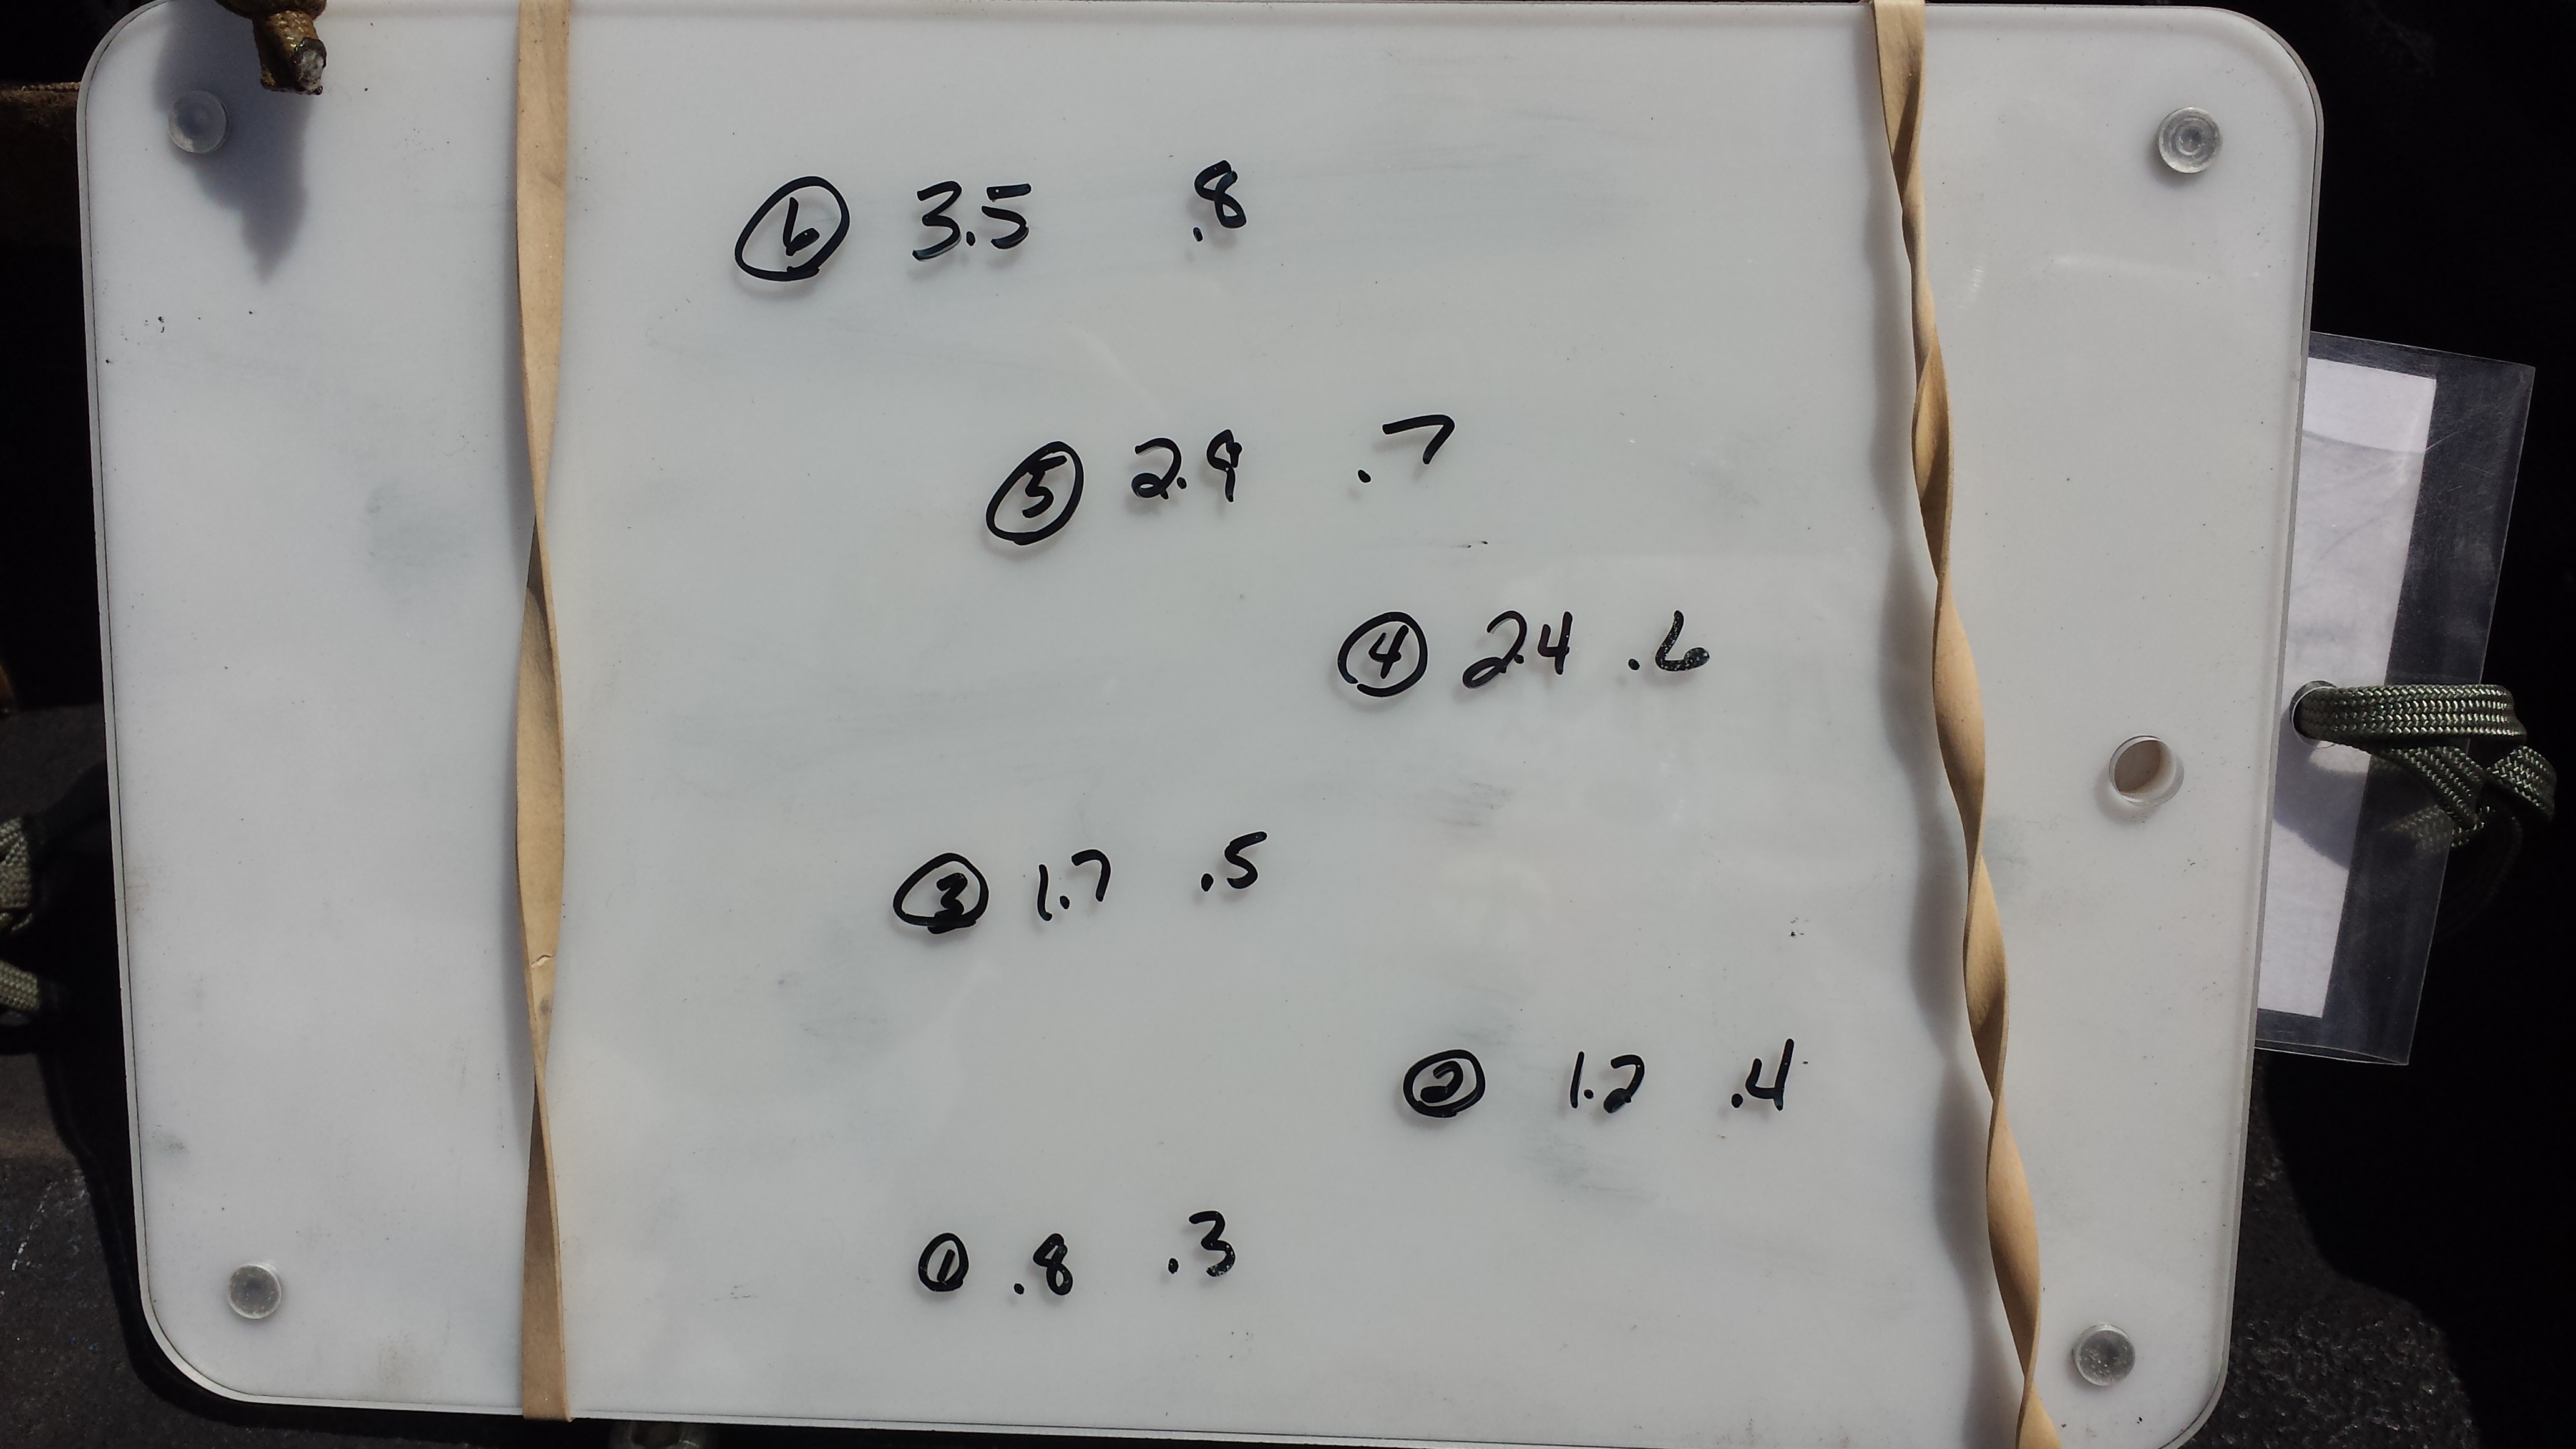 6 3.5 .8
5 2.9 .7
4 2.4 .6
3 1.7 .5
2 1.2 .4
1 .8 .3